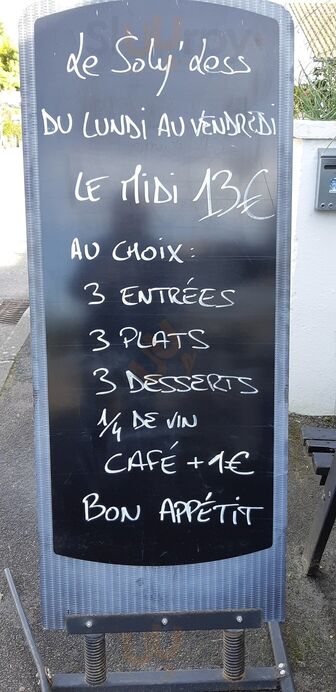 Le Soly'Less
DU LUNDI AU VENDREDI
LE MIDI 13€
AU CHOIX :
3 ENTRÉES
3 PLATS
3 DESSERTS
1/4 DE VIN
CAFÉ + 1€
BON APPÉTIT